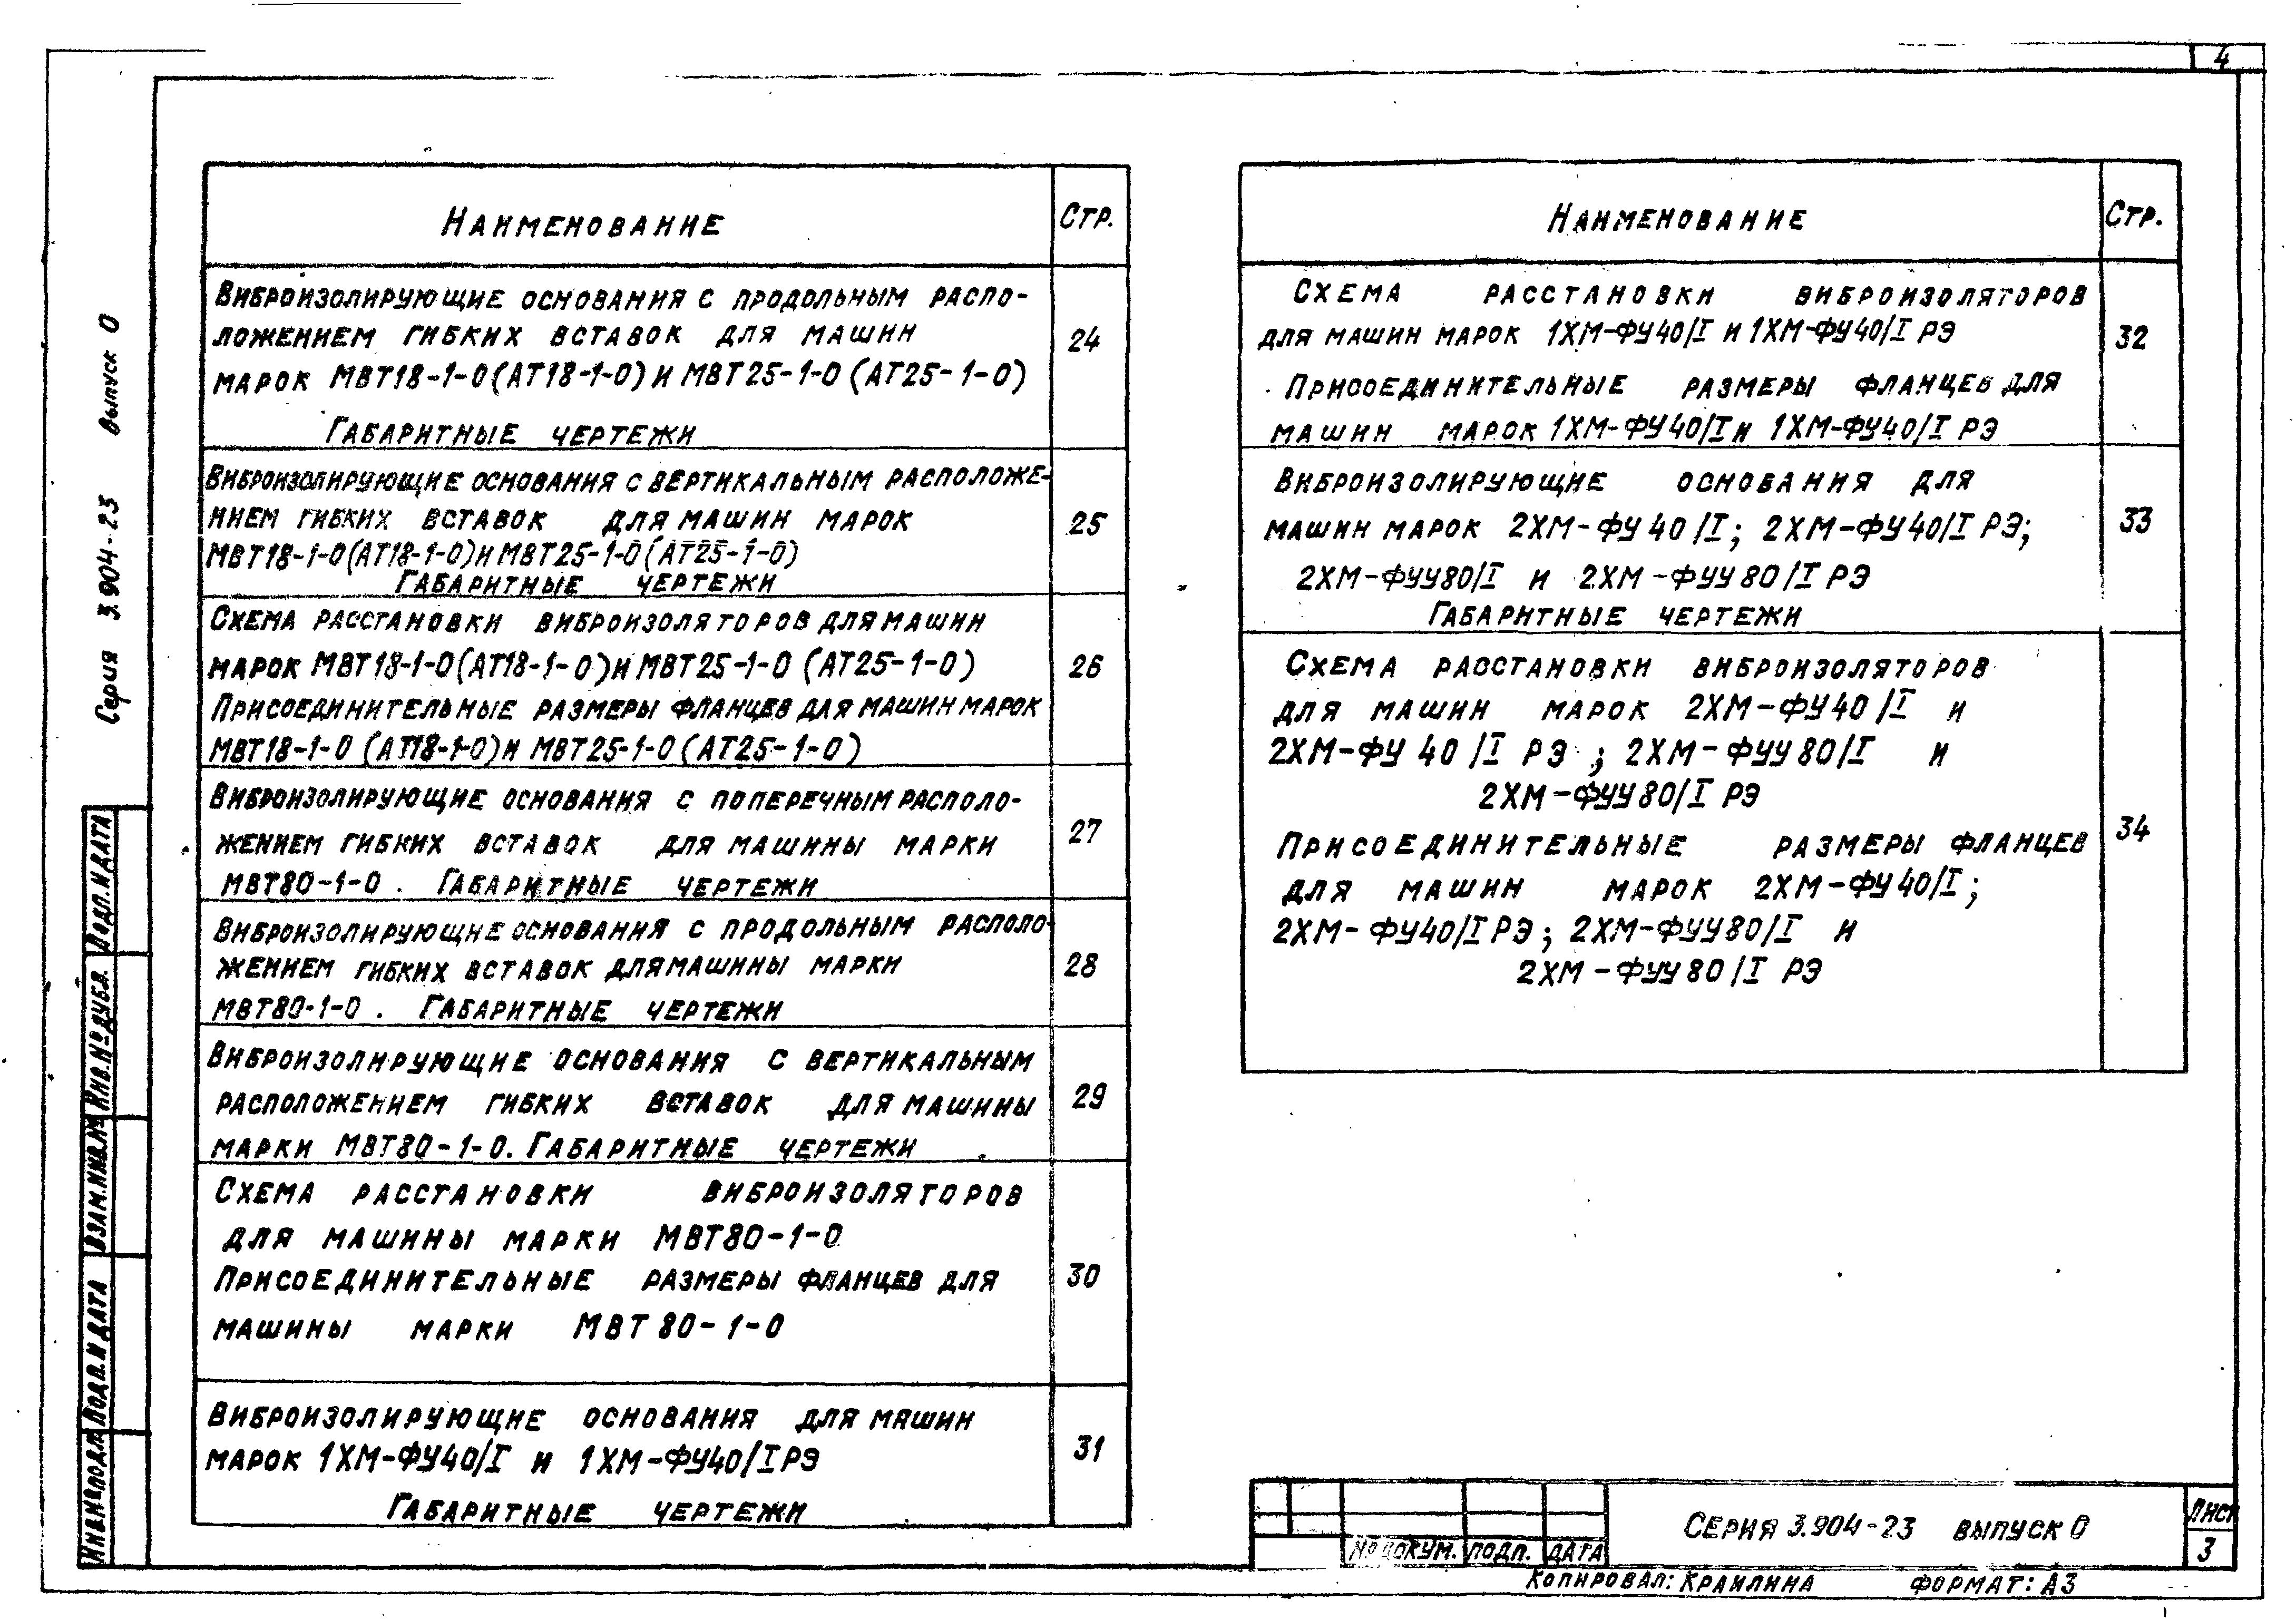 4
Наименование Стр.
Виброизолирующие основания с продольным распо-
ложением гибких вставок для машин 24
марок МВТ18-1-0(АТ18-1-0) и МВТ25-1-0 (АТ25-1-0)
Габаритные чертежи
Виброизолирующие основания с вертикальным расположе-
нием гибких вставок для машин марок 25
МВТ18-1-0(АТ18-1-0) и МВТ25-1-0 (АТ25-1-0)
Габаритные чертежи
Схема расстановки виброизоляторов для машин
марок МВТ18-1-0(АТ18-1-0) и МВТ25-1-0 (АТ25-1-0) 26
Присоединительные размеры фланцев для машин марок
МВТ18-1-0 (АТ18-1-0) и МВТ25-1-0 (АТ25-1-0)
Виброизолирующие основания с поперечным располо-
жением гибких вставок для машины марки 27
МВТ80-1-0. Габаритные чертежи
Виброизолирующие основания с продольным располо-
жением гибких вставок для машины марки 28
МВТ80-1-0. Габаритные чертежи
Виброизолирующие основания с вертикальным
расположением гибких вставок для машины 29
марки МВТ80-1-0. Габаритные чертежи
Схема расстановки виброизоляторов
для машины марки МВТ80-1-0
Присоединительные размеры фланцев для 30
машины марки МВТ 80-1-0
Виброизолирующие основания для машин
марок 1ХМ-ФУ40/I и 1ХМ-ФУ40/I РЭ 31
Габаритные чертежи
Наименование Стр.
Схема расстановки виброизоляторов
для машин марок 1ХМ-ФУ40/I и 1ХМ-ФУ40/I РЭ 32
Присоединительные размеры фланцев для
машин марок 1ХМ-ФУ40/I и 1ХМ-ФУ40/I РЭ
Виброизолирующие основания для
машин марок 2ХМ-ФУ40/I; 2ХМ-ФУ40/I РЭ; 33
2ХМ-ФУУ80/I и 2ХМ-ФУУ80/I РЭ
Габаритные чертежи
Схема расстановки виброизоляторов
для машин марок 2ХМ-ФУ40/I и
2ХМ-ФУ 40/I РЭ; 2ХМ-ФУУ80/I и
2ХМ-ФУУ80/I РЭ
Присоединительные размеры фланцев 34
для машин марок 2ХМ-ФУ40/I;
2ХМ-ФУ40/I РЭ; 2ХМ-ФУУ80/I и
2ХМ-ФУУ80/I РЭ
Серия 3.904-23 Выпуск 0
Инв.№ подл. Подп. и дата Взам.инв.№ Инв.№ дубл. Подп. и дата
№ докум. Подп. Дата
Серия 3.904-23 выпуск 0
Лист
3
Копировал: Краилина Формат: А3